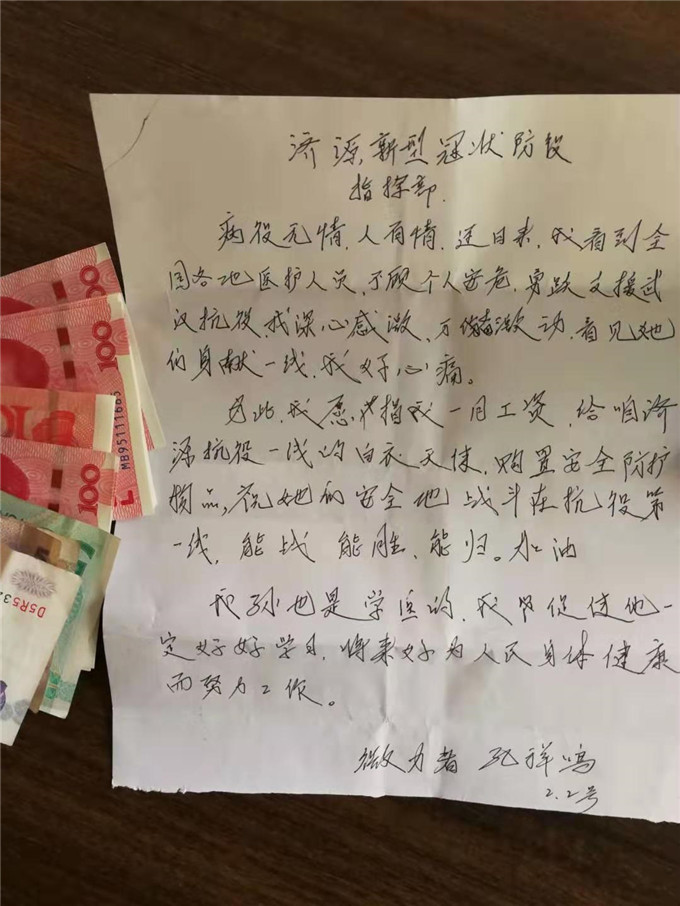 济源新型冠状防役
指挥部.
病役无情,人有情,近日来,我看到全
国各地医护人员,不顾个人安危,勇跃支援武
汉抗役我深心感激,万激动,看见她
们身献一线,我好心痛。
为此,我愿捐我一月工资,给咱济
源抗役一线的白衣天使,购置安全防护
物品,祝她们安全地战斗在抗役第
一线,能战 能胜、能归。加油
我孙也是学医的,我督促使他一
定好好学习,将来好为人民身体健康
而努力工作。
微力者 孔祥鸣
2.2号
100
100
100
MB95111665
D5R53